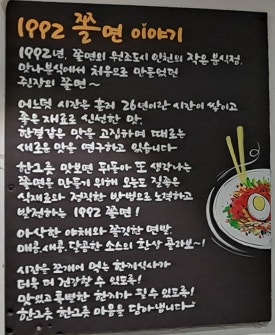 1992 쫄면 이야기
1992년, 쫄면의 원조도시 인천의 작은 분식점,
맛나분식에서 처음으로 만들었던
진정한 쫄면 ~
어느덧 시간은 흘러 26년이란 시간이 쌓이고
좋은 재료로 신선한 맛,
한결같은 맛을 고집하며 때로는
새로운 맛을 연구하고 있습니다
한그릇 맛보면 뒤돌아 또 생각나는
쫄면을 만들기 위해 오늘도 질좋은
식재료와 정직한 방법으로 노력하고
발전하는 1992 쫄면 !
아삭한 야채와 쫄깃한 면발,
매콤, 새콤, 달콤한 소스의 환상 콜라보~!
시간을 쪼개어 먹는 한끼식사가
더욱 더 건강할 수 있도록!
맛있고 특별한 한끼가 될 수 있도록!
한그릇 한그릇 마음을 담아냅니다~